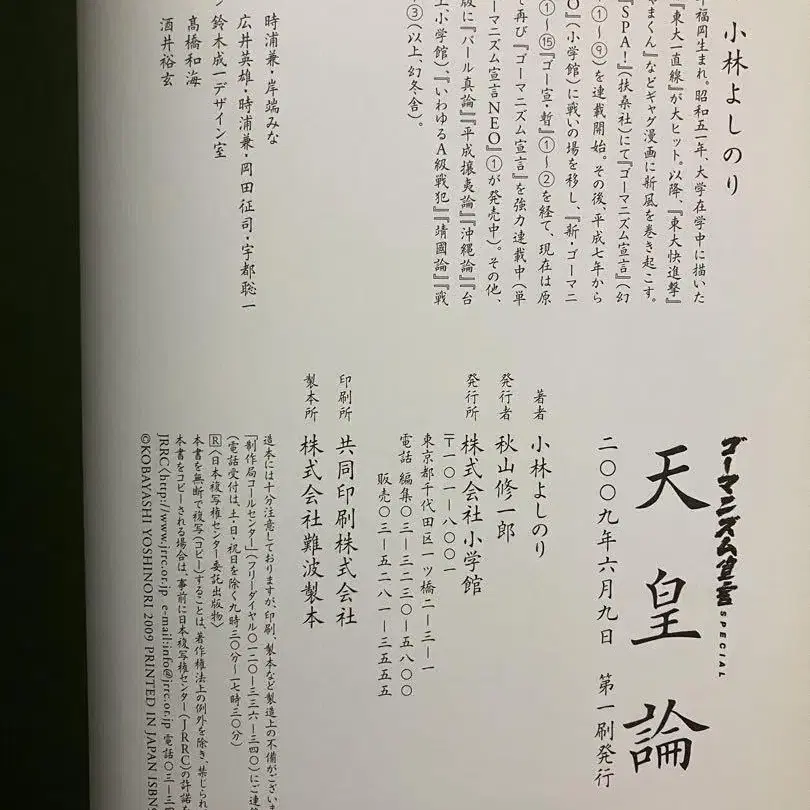 小林よしのり
福岡生まれ。昭和五一年、大学在学中に描いた
『東大一直線』が大ヒット。以降、『東大快進撃』
まくん』などギャグ漫画に新風を巻き起こす。
『SPA!』(扶桑社)にて『ゴーマニズム宣言』(幻
①〜⑨)を連載開始。その後、平成七年から
O』(小学館)に戦いの場を移し、『新・ゴーマニ
①〜⑮『ゴー宣・暫』①〜②を経て、現在は原
て再び『ゴーマニズム宣言』を強力連載中(単
ーマニズム宣言NEO』①が発売中)。その他、
版に『パール真論』『平成攘夷論』『沖縄論』『台
上小学館)『いわゆるA級戦犯』『靖國論』『戦
③(以上、幻冬舎)。
時浦兼・岸端みな
広井英雄・時浦兼・岡田征司・宇都聡一
鈴木成一デザイン室
高橋和海
酒井裕玄
ゴーマニズム宣言SPECIAL
天皇論
二〇〇九年六月九日 第一刷発行
著者 小林よしのり
発行者 秋山修一郎
発行所 株式会社小学館
〒一〇一-八〇〇一
東京都千代田区一ツ橋二-三-一
電話 編集〇三-三二三〇-五八〇〇
販売〇三-五二八一-三五五五
印刷所 共同印刷株式会社
製本所 株式会社難波製本
造本には十分注意しておりますが、印刷、製本など製造上の不備がございま
「制作局コールセンター」(フリーダイヤル〇一二〇-三三六-三四〇)にご連
(電話受付は、土・日・祝日を除く九時三〇分〜一七時三〇分)
R〈日本複写権センター委託出版物〉
本書を無断で複写(コピー)することは、著作権法上の例外を除き、禁じられ
本書をコピーされる場合は、事前に日本複写権センター(JRRC)の許諾を
JRRC〈http://www.jrrc.or.jp e-mail:info@jrrc.or.jp 電話〇三-三四
©KOBAYASHI YOSHINORI 2009 PRINTED IN JAPAN ISBN